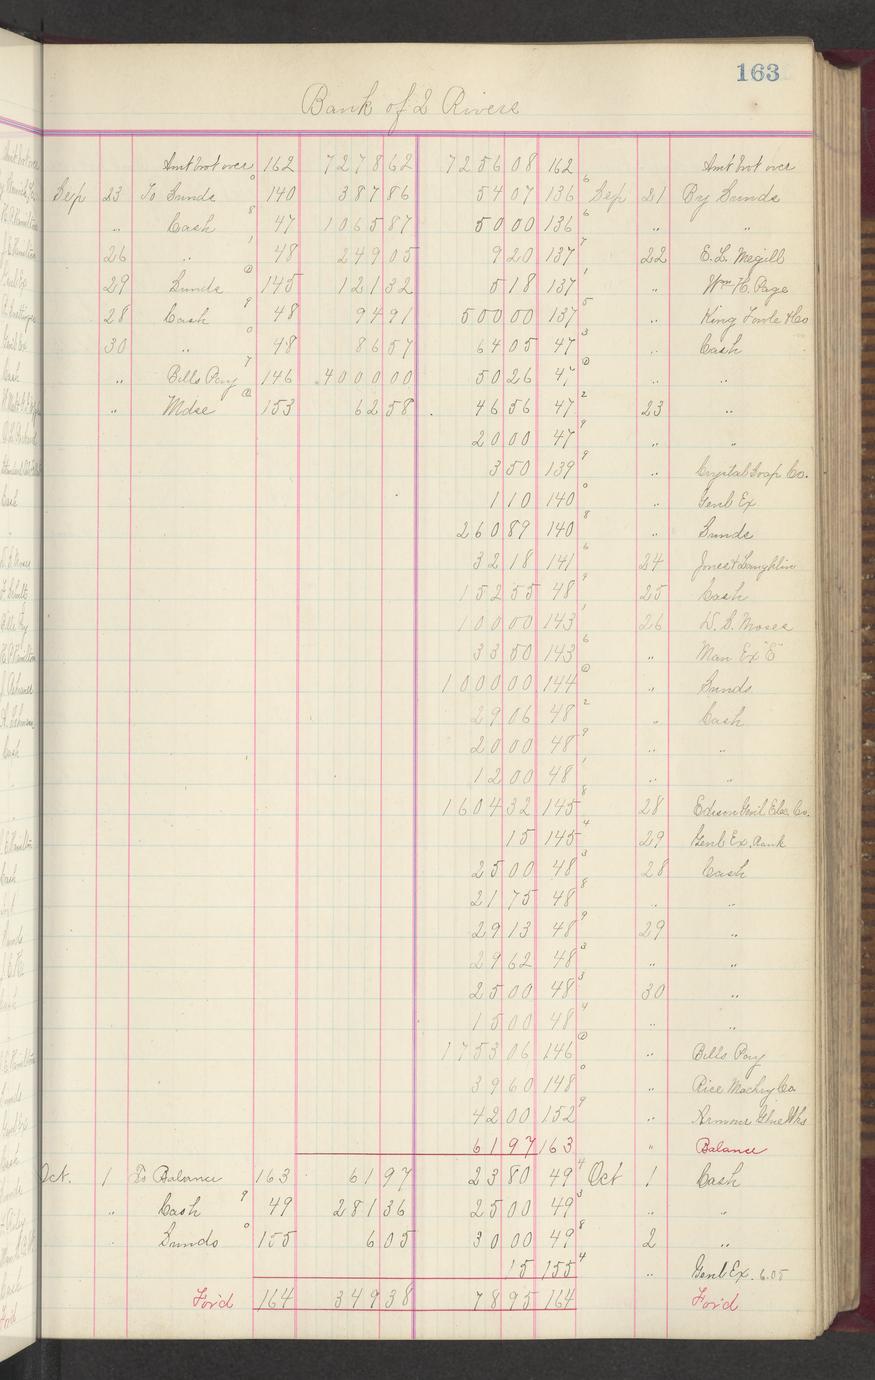 163
Bank of 2 Rivers
Amt brot over 162 7278 62 7256 08 162 Amt brot over
Sep 23 To Sunds 0 140 387 86 54 07 136 6 Sep 21 By Sunds
" Cash 8 47 1065 87 50 00 136 6 " "
26 " 1 48 249 05 9 20 137 7 22 E. L. Megill
29 Sunds 145 121 32 5 18 137 1 " Wm H. Page
28 Cash 9 48 94 91 500 00 137 5 " King Fowle & Co
30 " 0 48 86 57 64 05 47 3 " Cash
" Bills Pay 7 146 4000 00 50 26 47 " "
" Mdse 153 62 58 46 56 47 2 23 "
20 00 47 9 " "
3 50 139 9 " Crystal Soap Co.
1 10 140 0 " Genl Ex
260 89 140 8 " Sunds
32 18 141 6 24 Jones & Laughlin
152 55 48 9 25 Cash
100 00 143 1 26 W. S. Moses
33 50 143 6 " Man Ex "E"
1000 00 144 " Sunds
29 06 48 2 " Cash
20 00 48 9 " "
12 00 48 1 " "
1604 32 145 8 28 Edison Genl Elec. Co.
15 145 4 29 Genl Ex. Bank
25 00 48 3 28 Cash
21 75 48 8 " "
29 13 48 9 29 "
29 62 48 3 " "
25 00 48 3 30 "
15 00 48 4 " "
1753 06 146 " Bills Pay
39 60 148 0 " Rice Machry Co
42 00 152 9 " Armour Glue Wks
61 97 163 " Balance
Oct. 1 To Balance 163 61 97 23 80 49 4 Oct 1 Cash
" Cash 9 49 281 36 25 00 49 3 " "
Sunds 0 155 6 05 30 00 49 8 2 "
15 155 4 " Genl Ex. 6.05
For'd 164 349 38 78 95 164 For'd